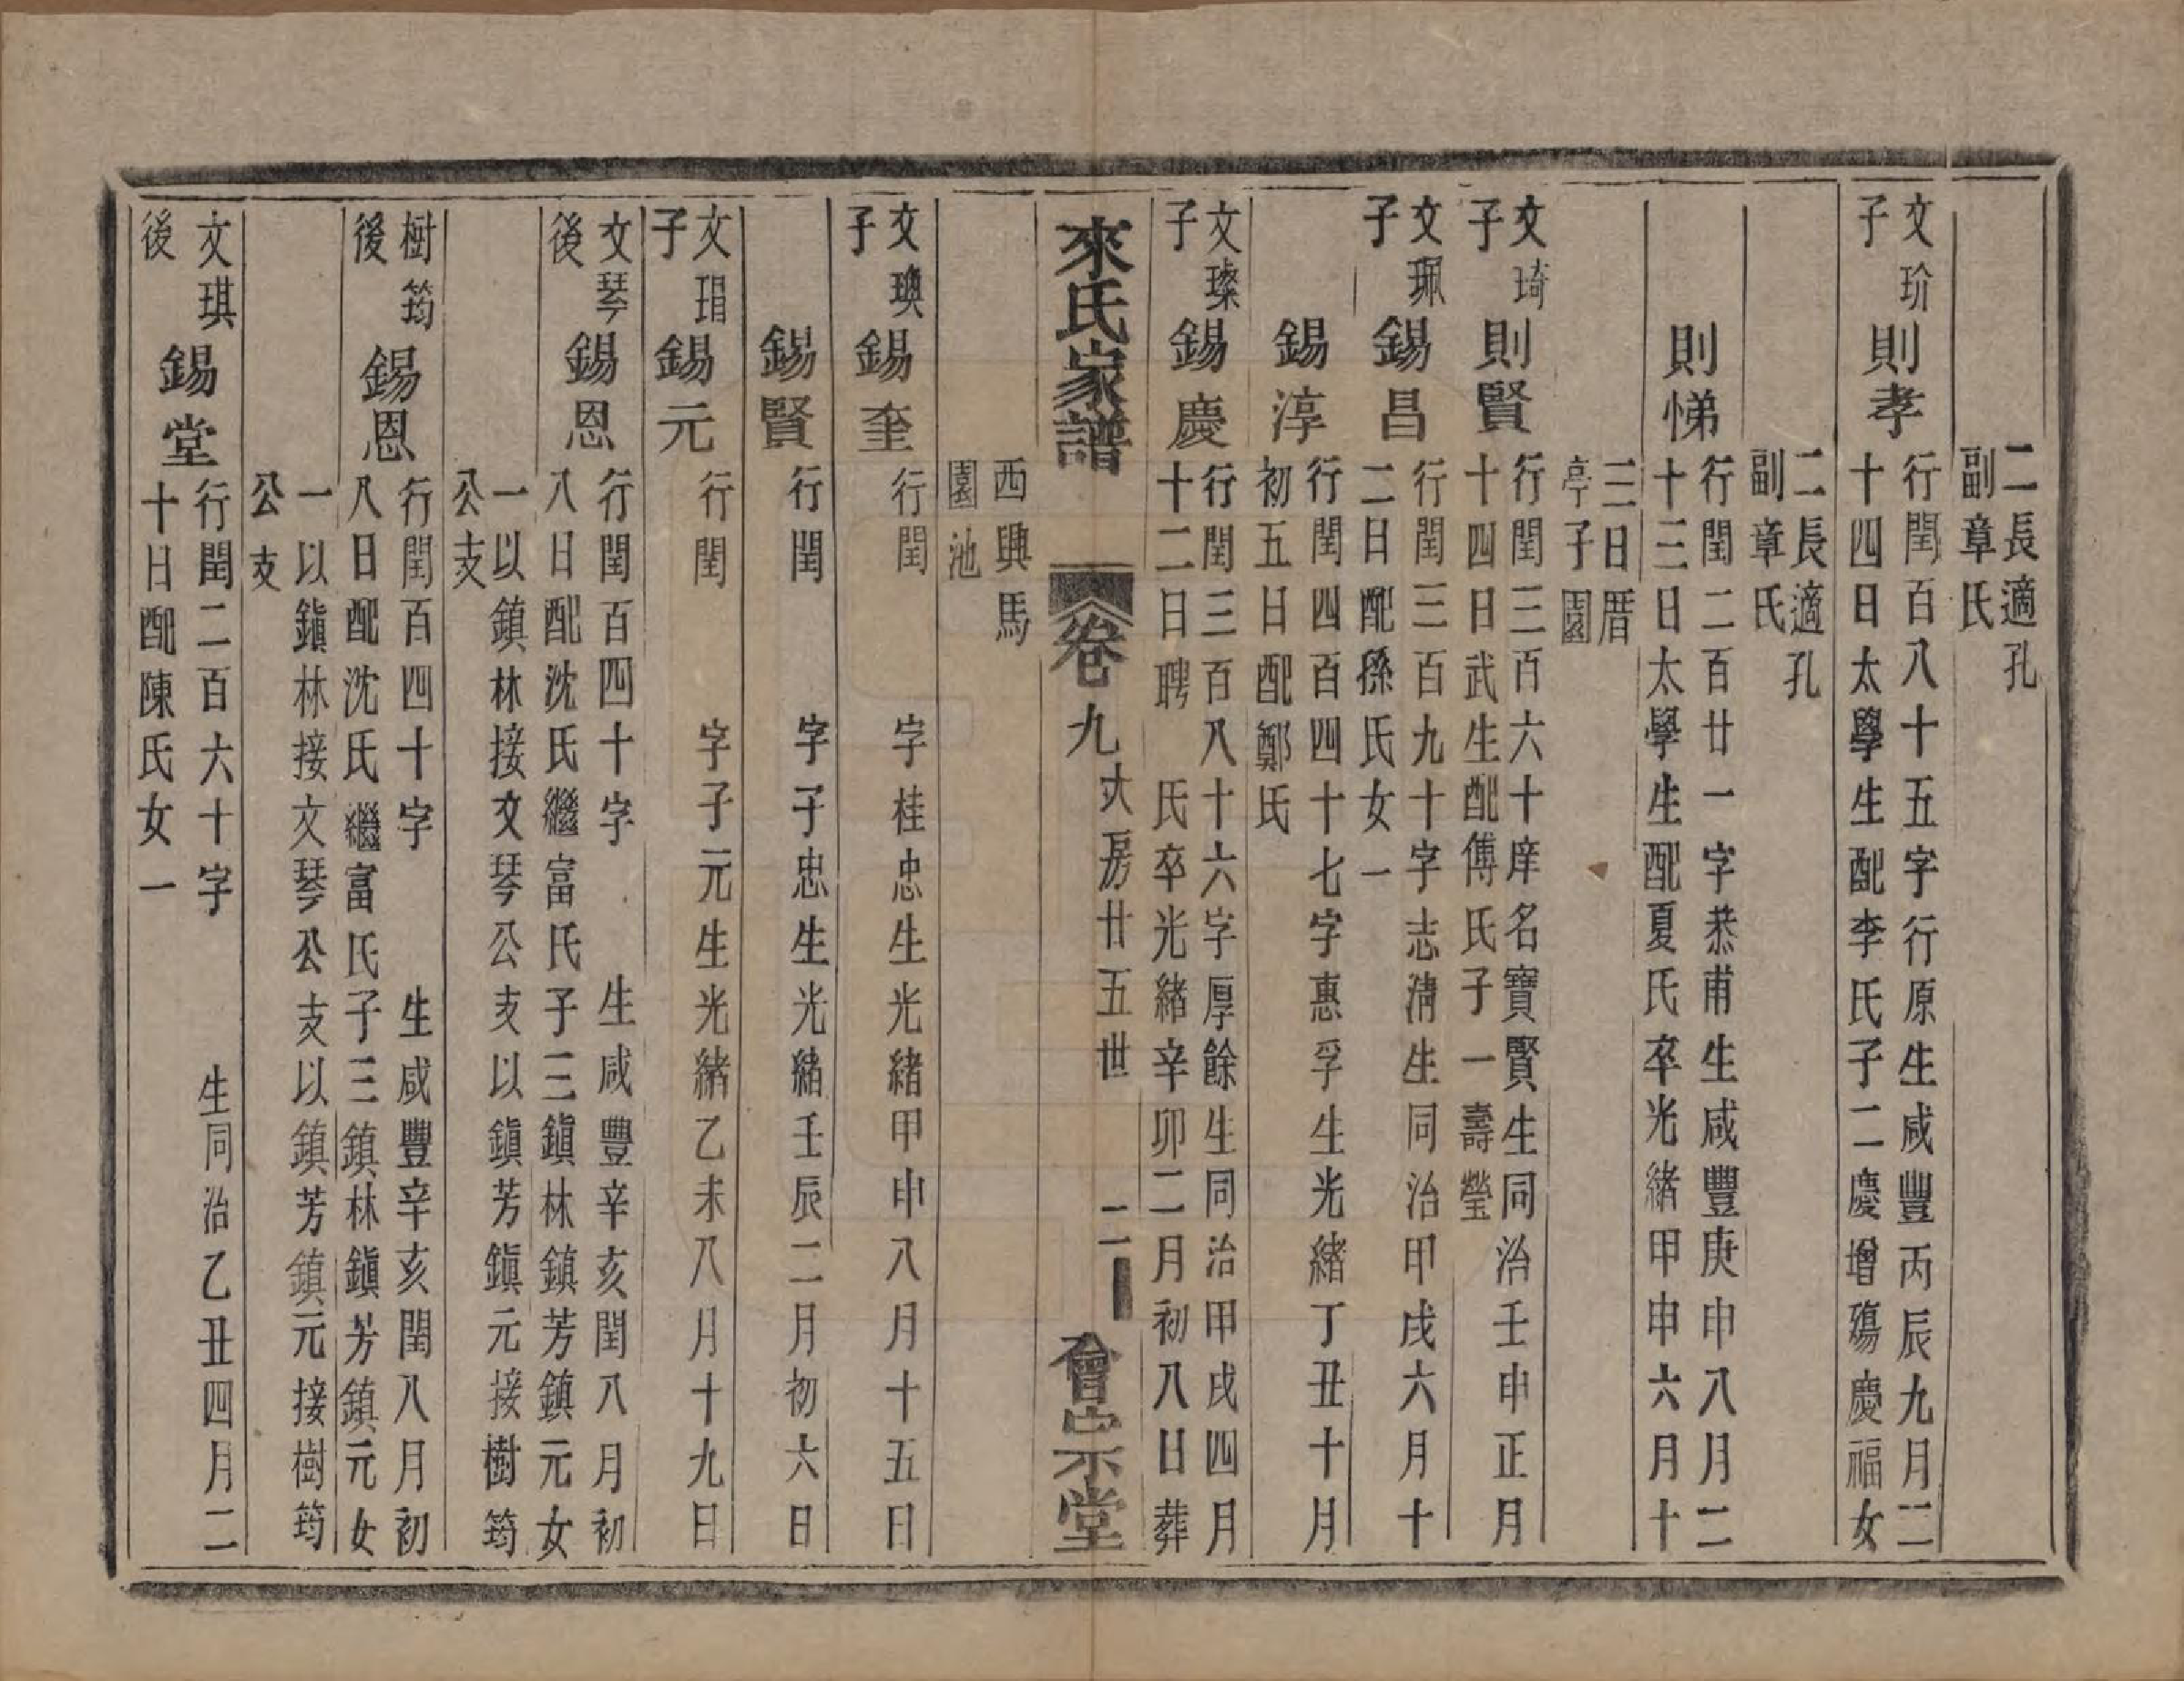 二長適孔
副章氏
文玠
子
則孝
行閏百八十五字行原生咸豐丙辰九月二
十四日太學生配李氏子二慶增殤慶福女
二長適孔
副章氏
則悌
行閏二百廿一字恭甫生咸豐庚申八月二
十三日太學生配夏氏卒光緒甲申六月十
三日厝
亭子園
文琦
子
則賢
行閏三百六十庠名寶賢生同治壬申正月
十四日武生配傅氏子一壽瑩
文珮
子
錫昌
行閏三百九十字志清生同治甲戌六月十
二日配孫氏女一
錫淳
行閏四百四十七字惠孚生光緒丁丑十月
初五日配鄭氏
文璨
子
錫慶
行閏三百八十六字厚餘生同治甲戌四月
十二日聘 氏卒光緒辛卯二月初八日葬
來氏家譜
卷九
大房廿五世
二
會宗堂
西興馬
園池
文璵
子
錫奎
行閏 字桂忠生光緒甲申八月十五日
錫賢
行閏 字子忠生光緒壬辰二月初六日
文琄
子
錫元
行閏 字子元生光緒乙未八月十九日
文琴
後
錫恩
行閏百四十字 生咸豐辛亥閏八月初
八日配沈氏繼富氏子三鎮林鎮芳鎮元女
一以鎮林接文琴公支以鎮芳鎮元接樹筠
公支
樹筠
後
錫恩
行閏百四十字 生咸豐辛亥閏八月初
八日配沈氏繼富氏子三鎮林鎮芳鎮元女
一以鎮林接文琴公支以鎮芳鎮元接樹筠
公支
文琪
後
錫堂
行閏二百六十字 生同治乙丑四月二
十日配陳氏女一